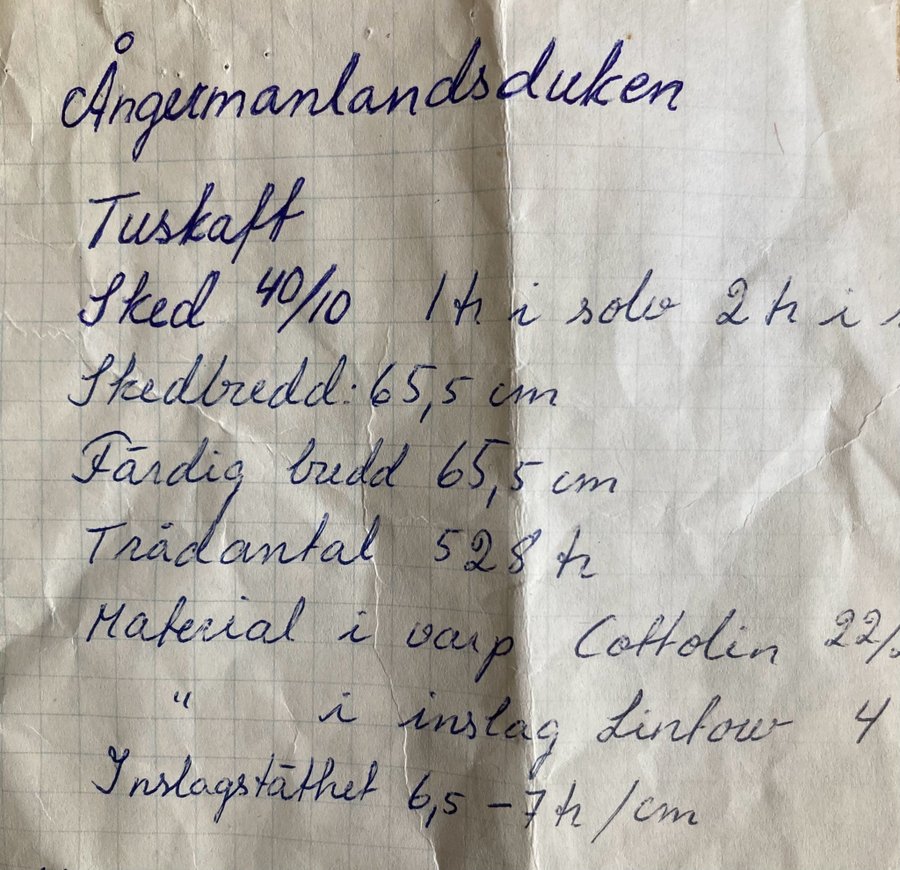 Ångermanlandsduken
Tuskaft
Sked 40/10 1 tr i solv 2 tr i
Skedbredd: 65,5 cm
Färdig bredd 65,5 cm
Trådantal 528 tr
Material i varp Cottolin 22/2
" i inslag Lintow 4
Inslagstäthet 6,5 - 7 tr / cm